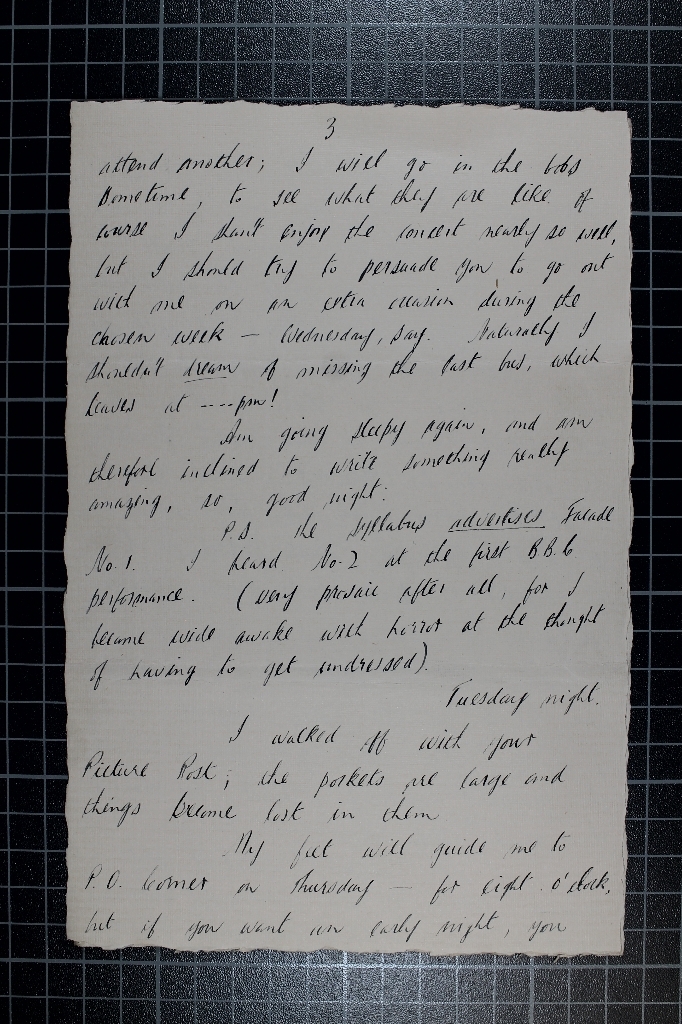 3
attend another; I will go in the bobs
sometime, to see what they are like. of
course I shan't enjoy the concert nearly so well,
but I should try to persuade you to go out
with me on an extra occasion during the
chosen week — Wednesday, say. Naturally I
shouldn't dream of missing the last bus, which
leaves at ----pm!
Am going sleepy again, and am
therefore inclined to write something really
amazing, so, good night.
P.S. the syllabus advertises Facade
No. 1. I heard No. 2 at the first B.B.C
performance. (very prosaic after all, for I
became wide awake with horror at the thought
of having to get undressed).
Tuesday night.
I walked off with your
Picture Post; the pockets are large and
things become lost in them
My feet will guide me to
P.O. Corner on Thursday — for eight o'clock,
but if you want an early night, you